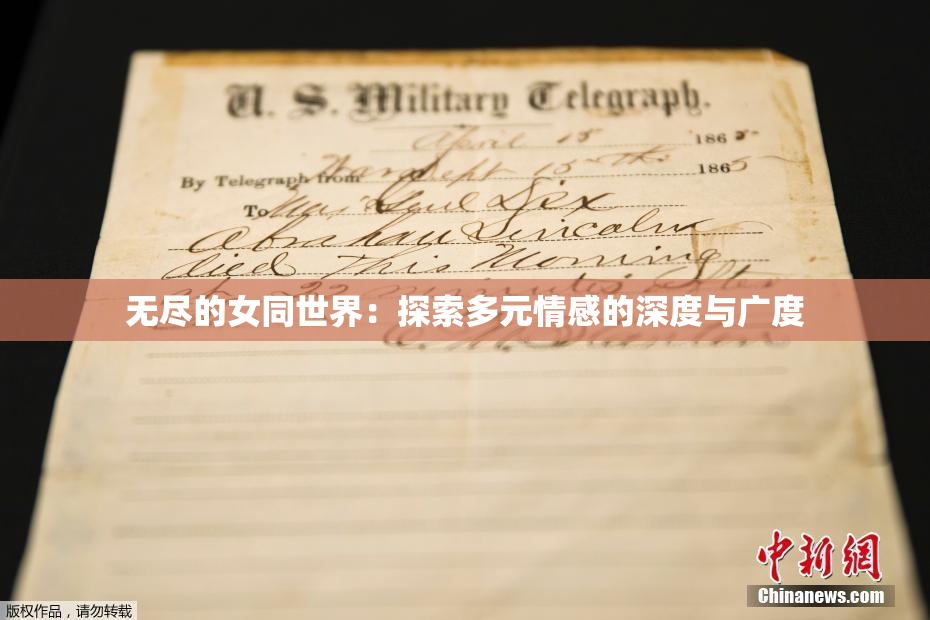 U. S. Military Telegraph.
April 15 1865
By Telegraph from War Dept 15th 1865
To Maj Genl Dix
Abraham Lincoln
died This Morning
at 22 minutes after
无尽的女同世界：探索多元情感的深度与广度
E. M. Stanton
中新网
Chinanews.com
版权作品，请勿转载